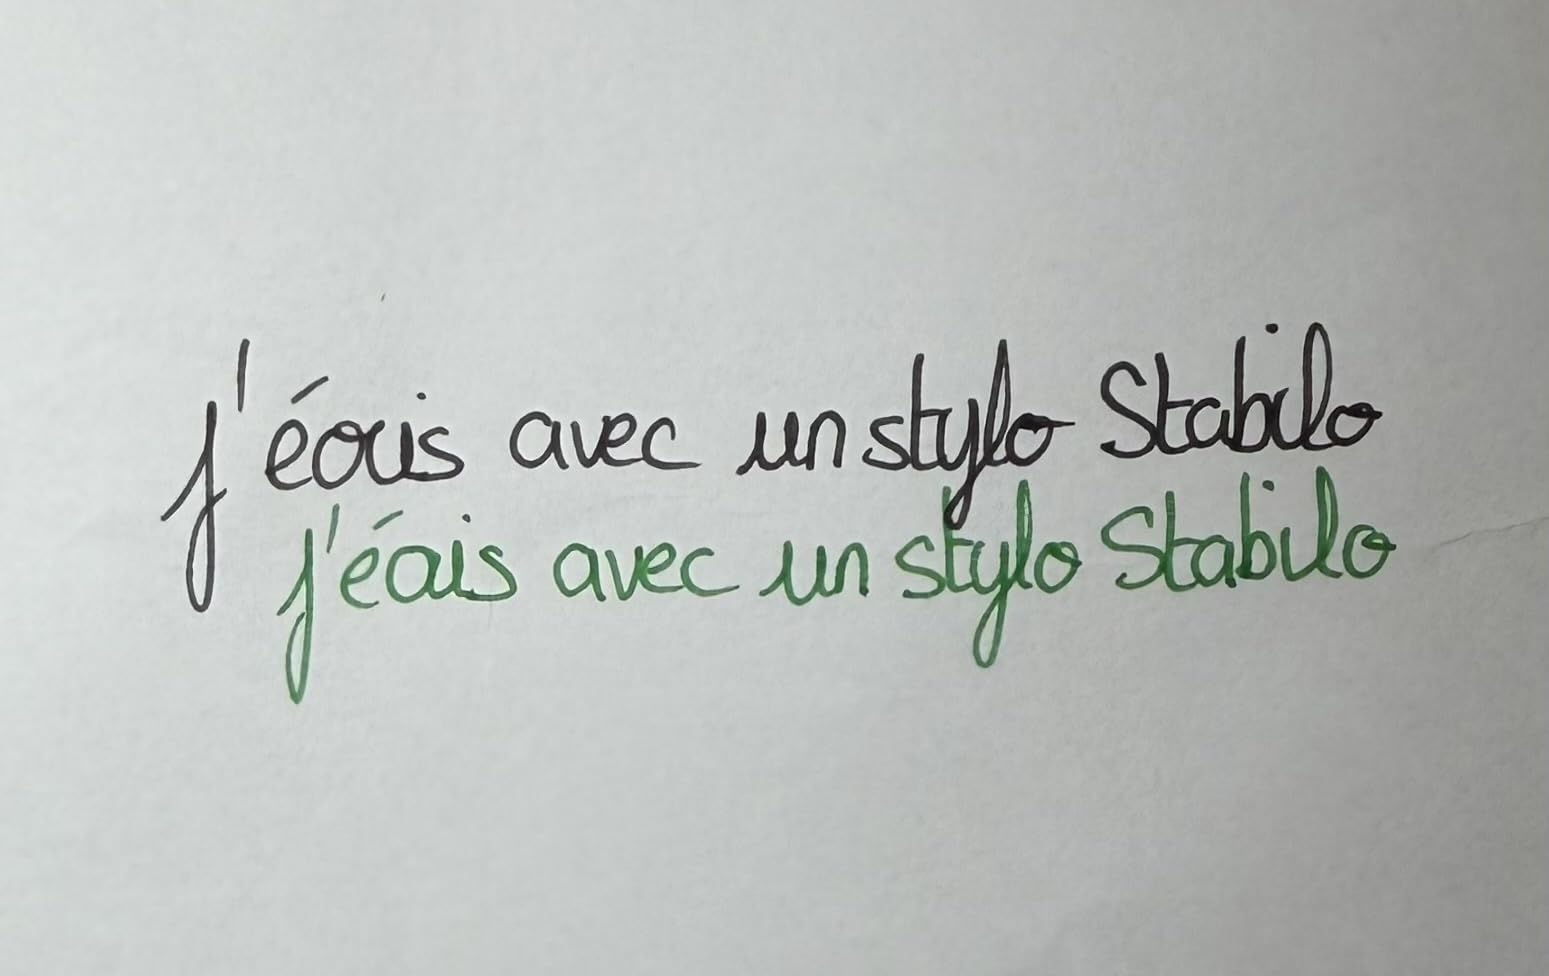 j'écris avec un stylo Stabilo
j'écris avec un stylo Stabilo